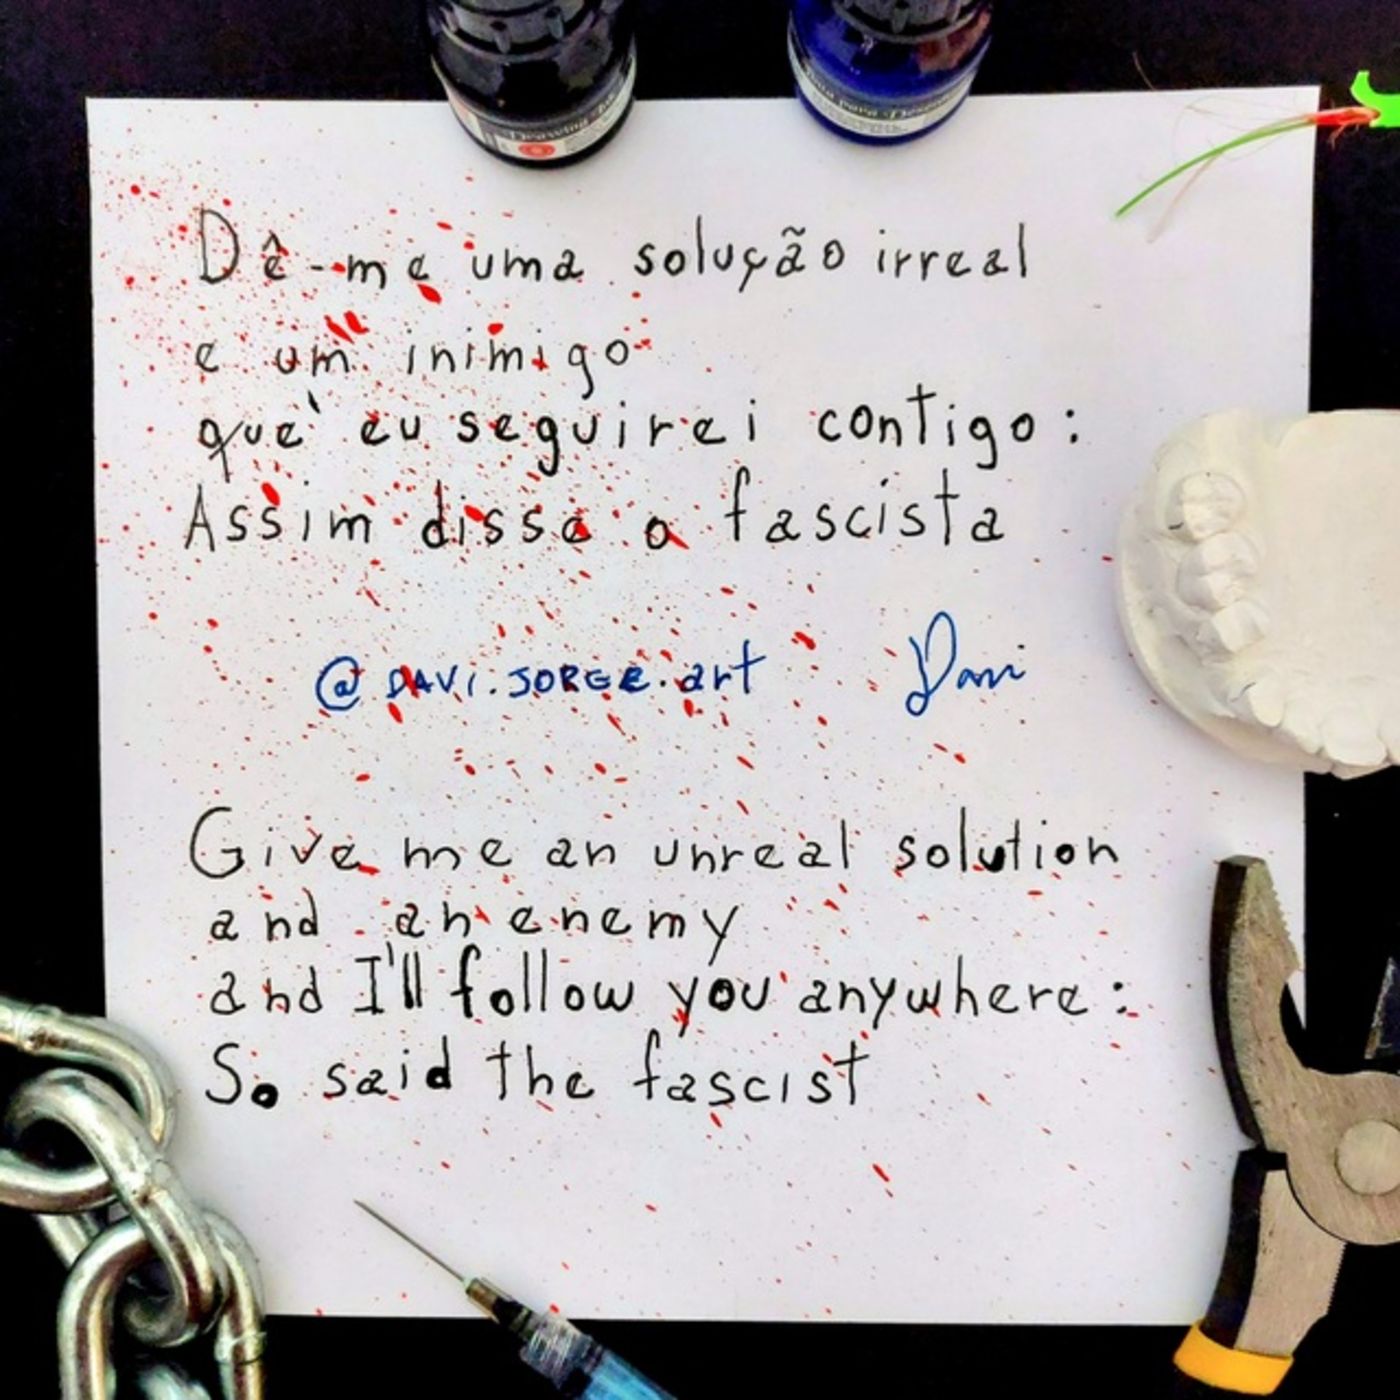 Drawing
para Desenho
Dê-me uma solução irreal
e um inimigo
que eu seguirei contigo:
Assim disse o fascista
@DAVI.JORGE.art Davi
Give me an unreal solution
and an enemy
and I'll follow you anywhere:
So said the fascist